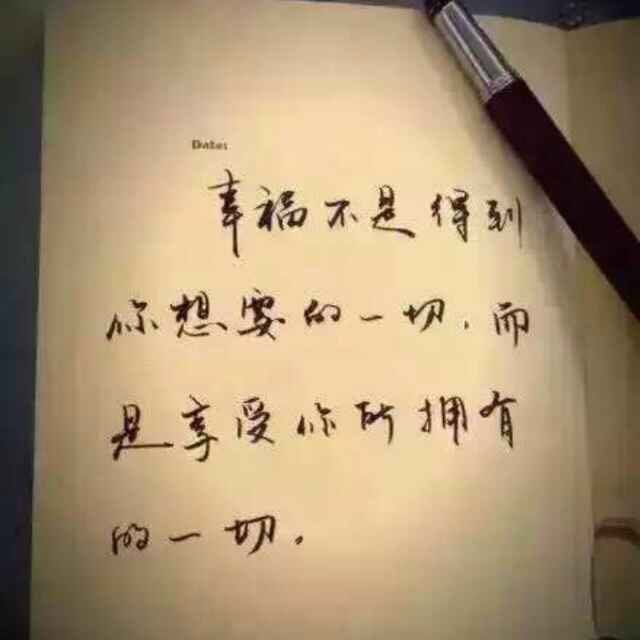 Date:
幸福不是得到
你想要的一切，而
是享受你所拥有
的一切。